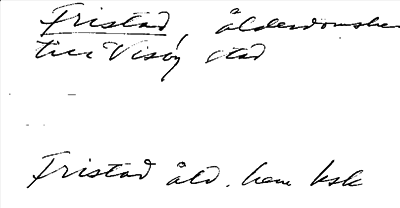 Fristad, ålderdomshe
till Visby stad
Fristad åld. hem ksk